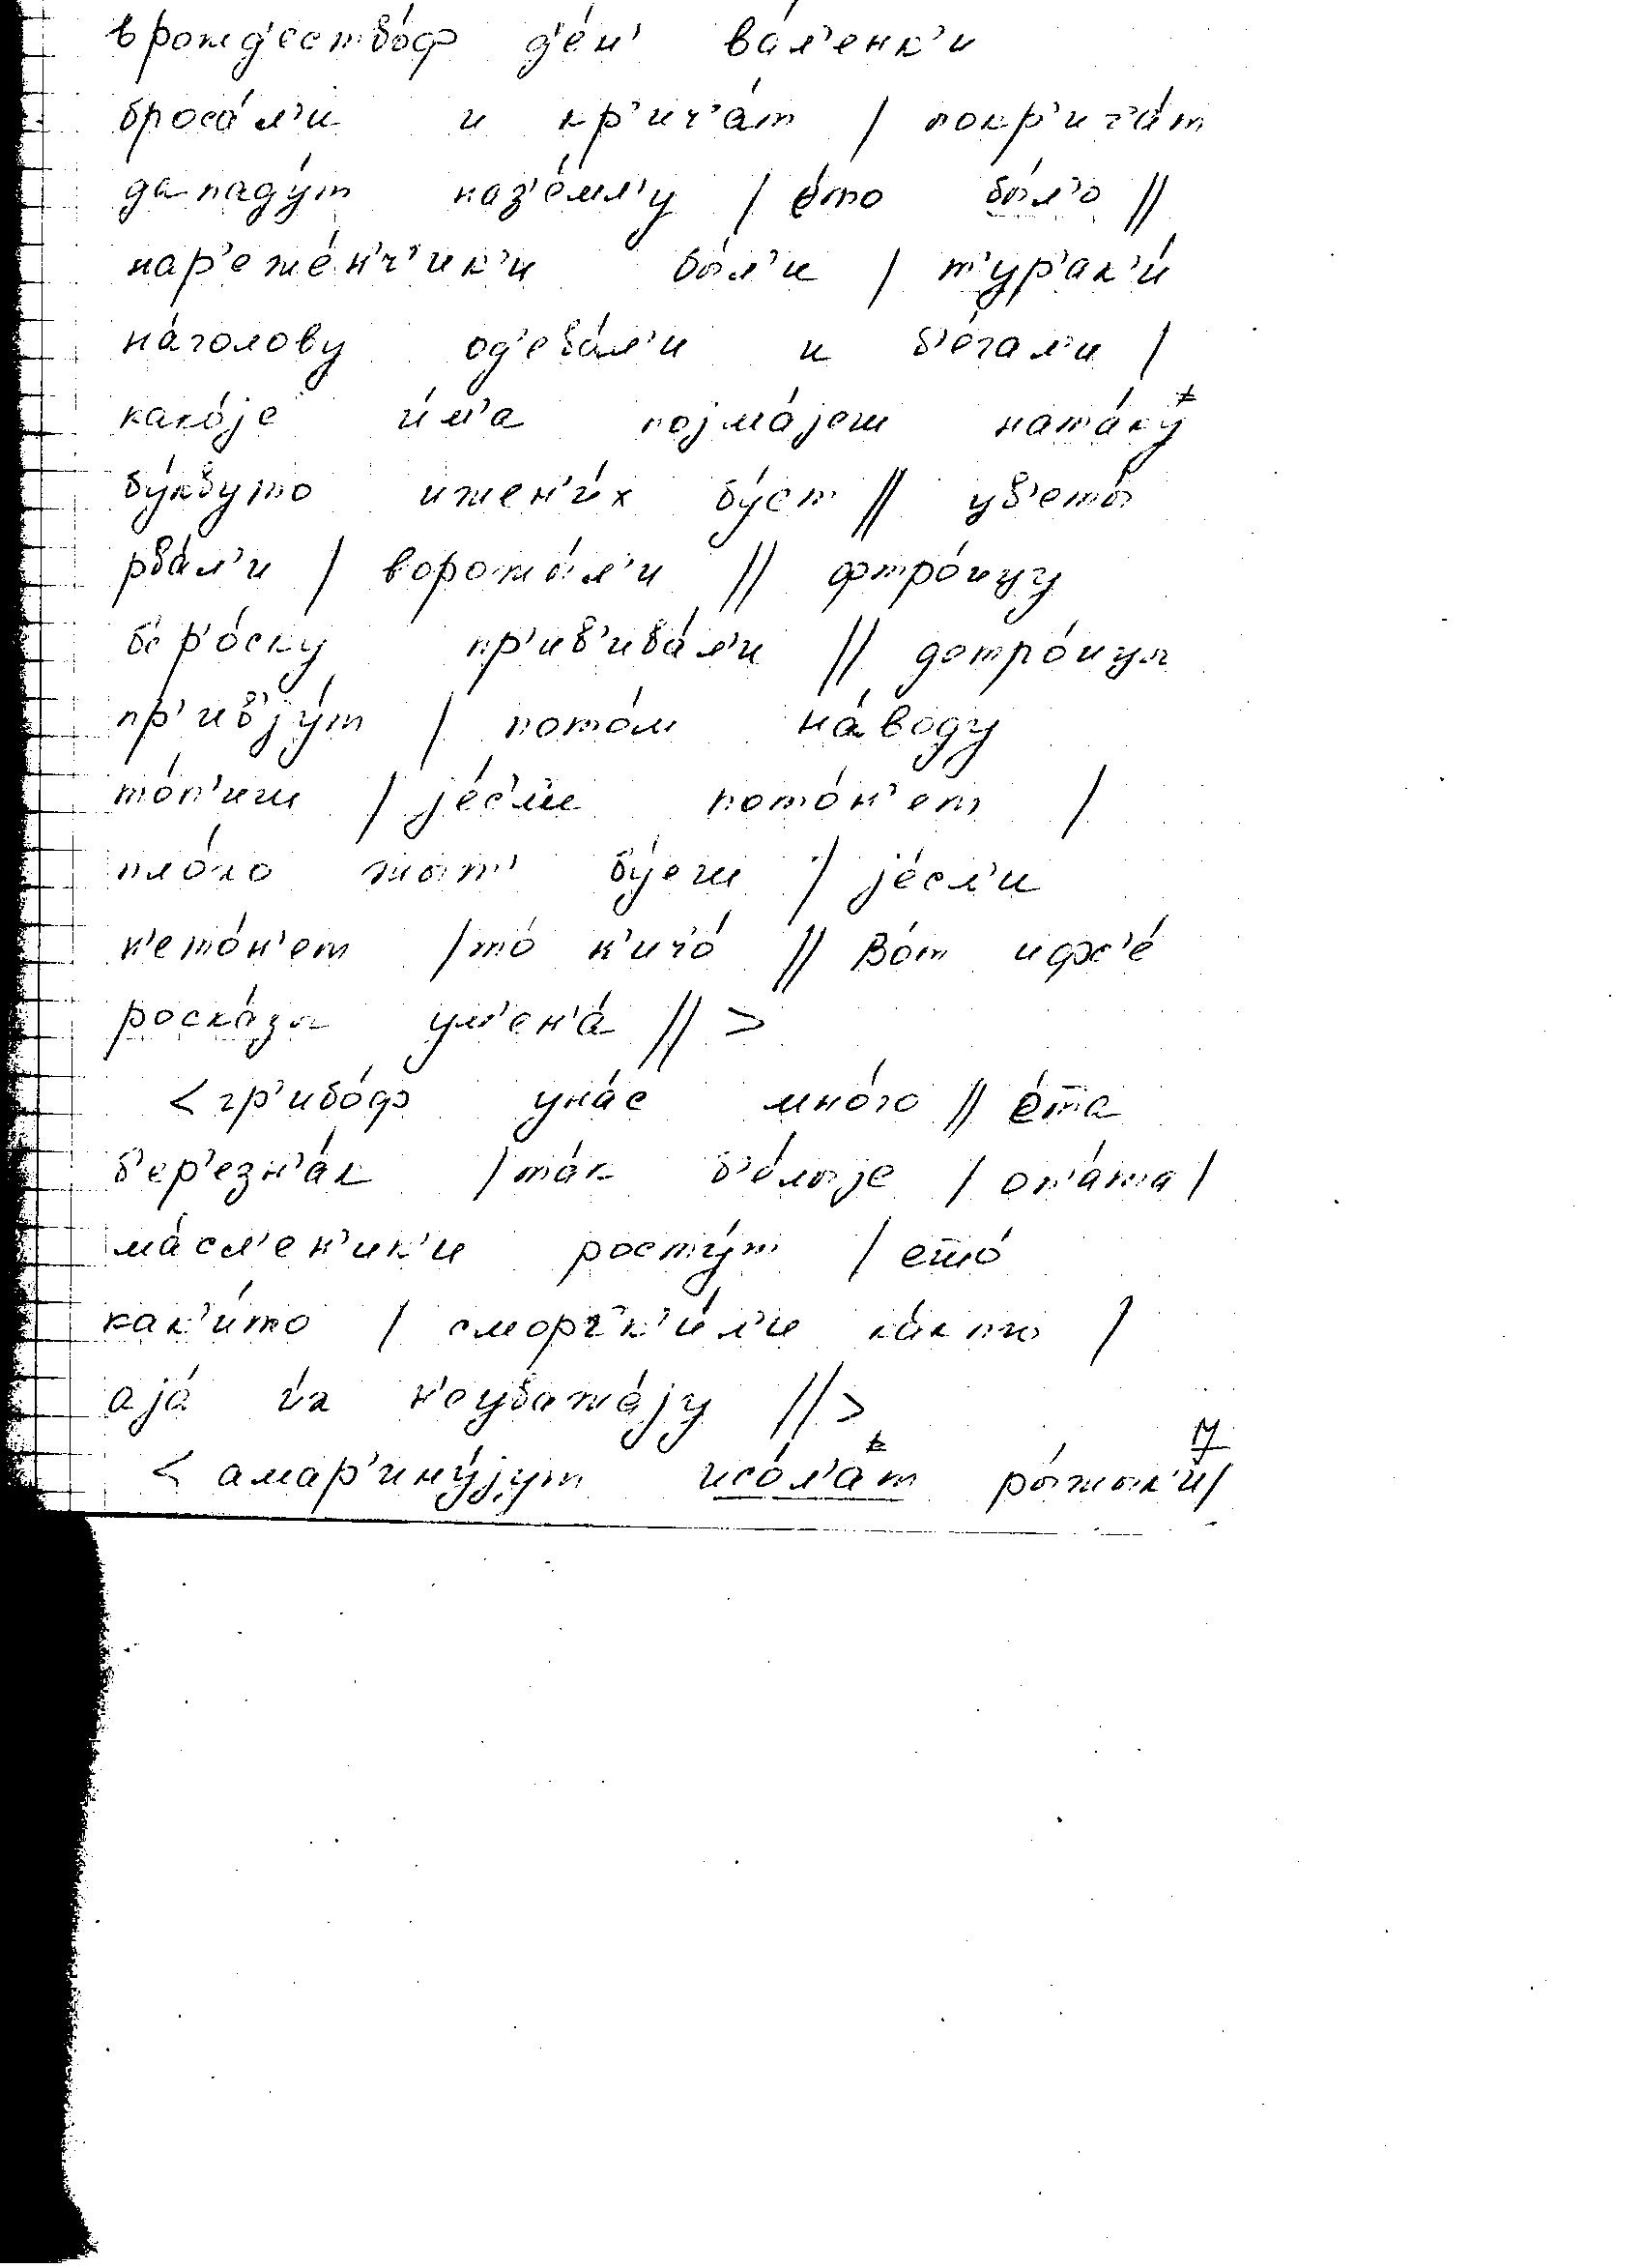 врожд'ество́ф д'е́н' ва́л'енк'и
броса́л'и и кр'ич'а́т / покр'ич'а́т
дападу́т наз'е́мл'у / е́то бы́л'о //
нар'еже́н'ч'ик'и бы́л'и / т'ур'ак'и́
на́голову од'ева́л'и и б'е́гал'и /
како́је и́м'а појма́јеш ната́ку́
бу́квуто ижен'и́х бу́ет // цв'еты́
рва́л'и / ворожы́л'и // фтро́ицу
б'ер'о́ску пр'ив'ива́л'и // дотро́ицы
пр'ив'ју́т / пото́м на́воду
то́п'иш / је́с'л'и пото́н'ет /
пло́хо жыт' бу́еш / је́сл'и
н'ето́н'ет / то́ н'ич'о́ // Во́т ифс'е́
роска́зы ум'ен'а́ // >
< гр'ибо́ф уна́с мно́го // е́та
б'ер'езн'а́к / та́к б'е́лыје / оп'а́та /
ма́сл'ен'ик'и росту́т / ето́
как'и́то / сморчк'и́л'и ка́кто /
ајá и́х н'еуважа́ју // >
< амар'ину́јут исо́л'а́т ры́жык'и /